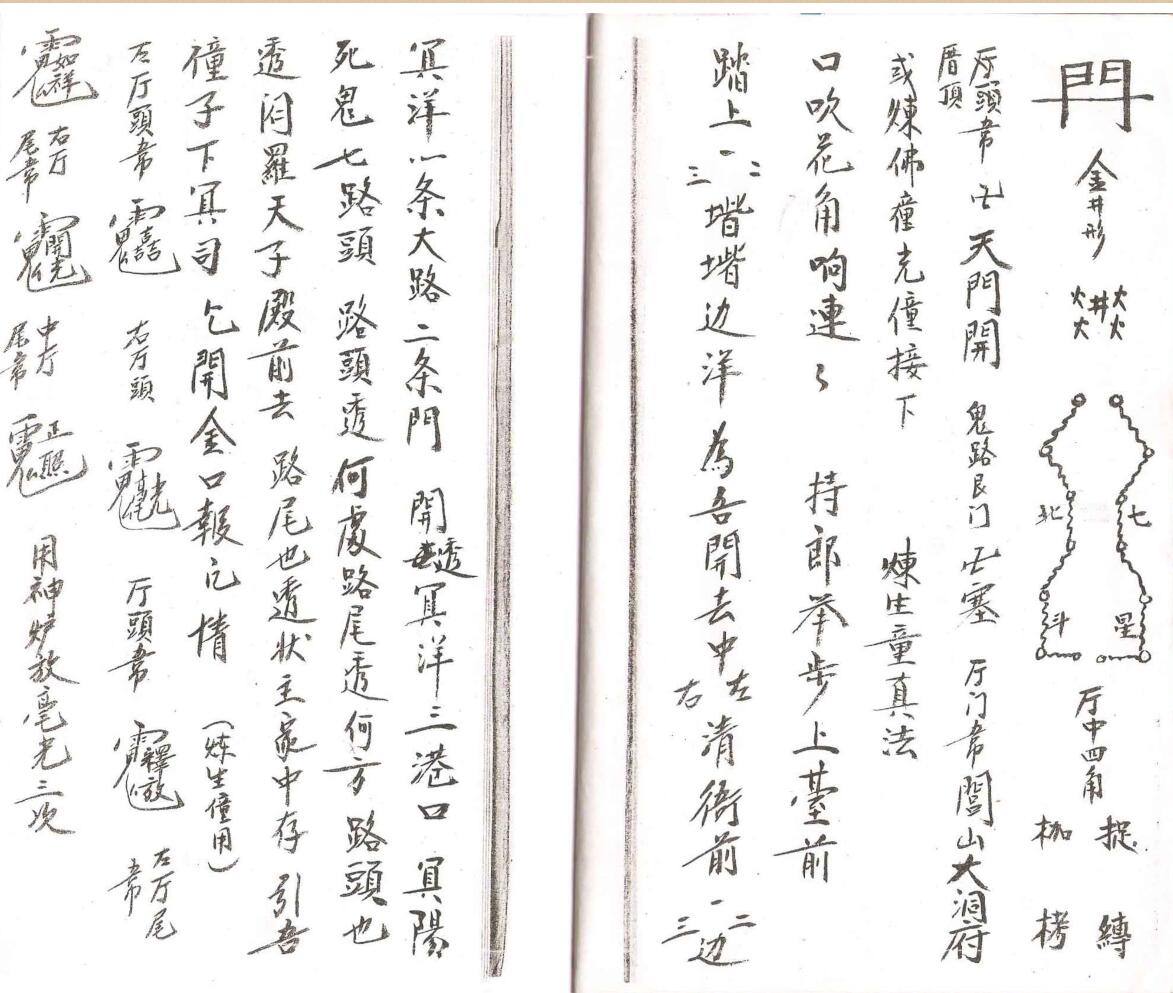 門 金井形 火火井火火 七星 北斗 厅中四角 捉縛 枷栲
厅頭書 卍 天門開 鬼路艮门 卍塞 厅门書 閭山大洞府
厝頂
或煉佛僮壳僮接下 煉生童真法
口吹花角响連〻 持郎举步上臺前
踏上一二三堦堦边洋 為吾開去中左右清衙前 一二三边
冥洋一条大路二条門 開透冥洋三港口 冥陽
死鬼七路頭 路頭透何處路尾透何方 路頭也
透闰羅天子殿前去 路尾也透状主家中存 引吾
僮子下冥司 乞開金口報記情 (炼生僮用)
左厅頭書 右厅頭 厅頭書 左厅尾書
右厅尾書 中厅尾書 用神炉放毫光三次